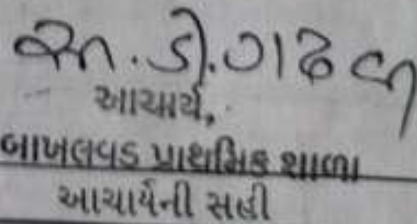 એન. ડી. ગાઢવી
આચાર્ય,
બાખલવડ પ્રાથમિક શાળા
આચાર્યની સહી